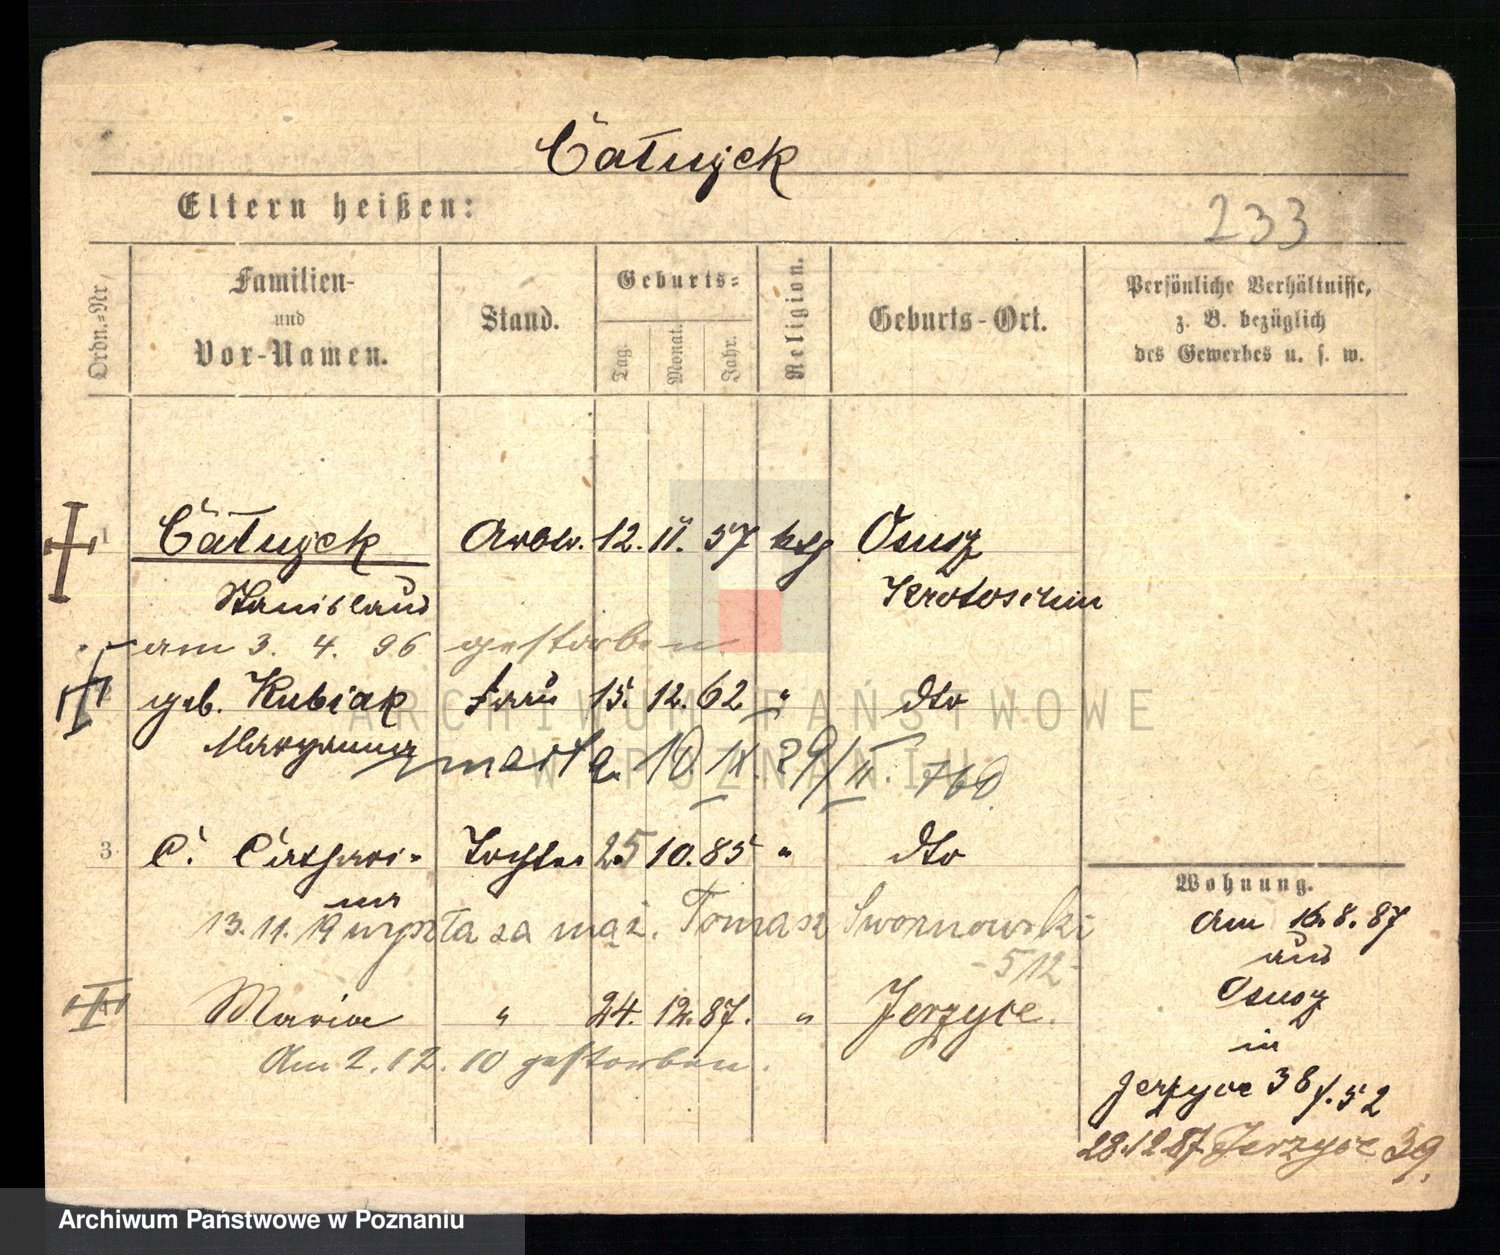 Całujek
Eltern heißen:
233
Ordn.-Nr
Familien-
und
Vor-Namen.
Stand.
Geburts-
Tag.
Monat.
Jahr.
Religion.
Geburts-Ort.
Persönliche Verhältnisse,
z. B. bezüglich
des Gewerbes u. s. w.
1 Całujek Arbtr. 12. 11. 57 ktg Osusz
Stanislaus Krotoschin
am 3. 4. 96 gestorben
geb. Kubiak Frau 15. 12. 62 " dto
Maryanna zmarła 10. IX. 29/II. 760
3 C. Cathari- Tochter 25 10. 85 " dto
na
13. 11. 19 wyszła za mąż. Tomasz Swornowski
-512-
Maria " 24. 12. 87. " Jerzyce.
Am 2. 12. 10 gestorben.
Wohnung.
Am 16. 8. 87
aus
Osusz
in
Jerzyce 38 f. 52
28.12 87 Jerzyce 39.
ARCHIWUM PAŃSTWOWE
W POZNANIU
Archiwum Państwowe w Poznaniu